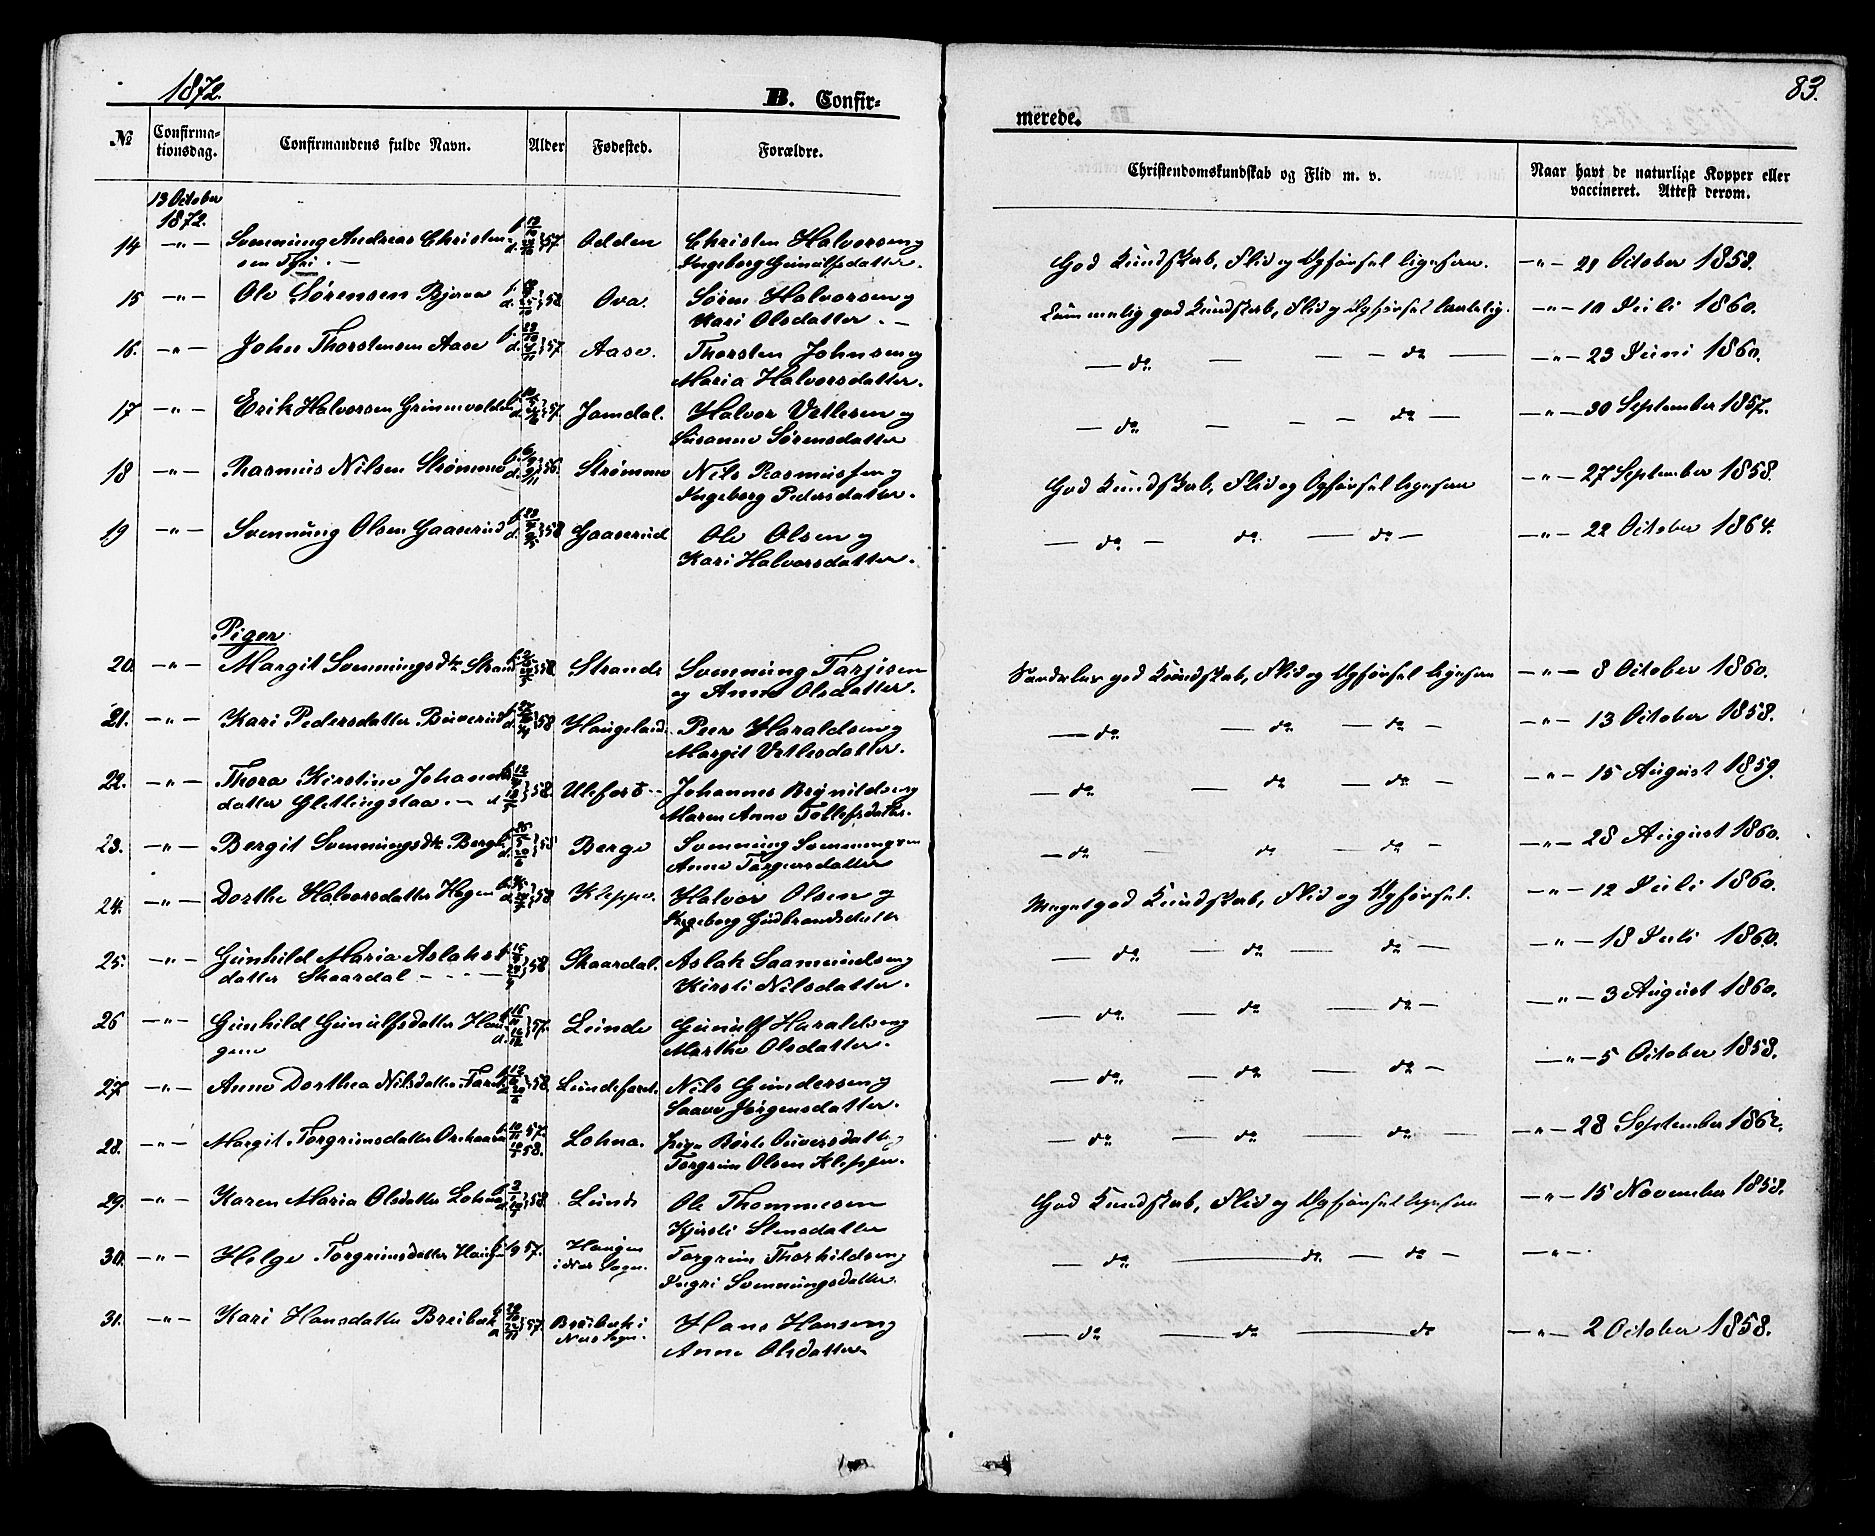 1872.
B. Confir-
№ Confirma-tionsdag. Confirmandens fulde Navn. Alder Fødested. Forældre.
13 October
1872.
14 —"— Svennung Andreas Christen- 57 Odden Christen Halvorsen og
sen Tyri. — Ingeborg Gunulfsdatter.
15 —"— Ole Sørensen Bjerva 58 Ova Søren Halvorsen og
Kari Olsdatter. —
16. —"— John Thorstensen Aase 57 Aase. Thorsten Johnsen og
Maria Halvorsdatter.
17 —"— Erik Halvorsen Grimevolden 57. Jomdal. Halvor Vetlesen og
Susanne Sørensdatter
18 —"— Rasmus Nilsen Strømmo 56. Strømmo Nils Rasmussen og
Ingeborg Pedersdatter.
19 —"— Svennung Olsen Gaaserud 58 Gaaserud Ole Olsen og
Kari Halvorsdatter.
Piger
20. —"— Margit Svennungsdtr Strand 58. Strande Svennung Tarjisen
og Anne Olsdatter.
21. —"— Kari Pedersdatter Buverud 58. Haugeland. Peer Haraldsen og
Margit Vetlesdatter.
22. —"— Thora Kirstine Johannes- 58. Ulefos — Johannes Brynildsen og
datter — Maren Anne Tollefsdatter.
23. —"— Bergit Svennungsdtr. Berge 58 Berge Svennung Svennungsen
Anne Targersdatter
24. —"— Dorthe Halvorsdatter Hagen 58 Kleppe. Halvor Olsen og
Ingeborg Gudbrandsdatter
25. —"— Gunhild Maria Aslaks- 58 Skaardal. Aslak Saamundsen og
datter Skaardal — Kirsti Nilsdatter.
26 —"— Gunhild Gunulfsdatter Hau- 57. Lunde Gunulf Haraldsen og
gene Marthe Olsdatter.
27. —"— Anne Dorthea Nilsdatter 58. Lundefaret. Nils Gundersen og
Saave Jørgensdatter.
28. —"— Margit Torgrimsdatter 57. 58. Lohna. Pige Børte Oliversdatter
Torgrim Olsen Kleppen.
29. —"— Karen Maria Olsdatter Lohna 58. Lunde Ole Thommesen
Kjersti Stensdatter
30. —"— Helge Torgrimsdatter Haugen 57. Haugen Torgrim Thorkildsen og
i Næs Sogn. Ingri Svennungsdatter.
31. —"— Kari Hansdatter Breibæk 57. Breibæk i Hans Hansen og
Næs Sogn. Anne Olsdatter.
83.
merede.
Christendomskundskab og Flid m. v. Naar havt de naturlige Kopper eller vaccineret. Attest derom.
God Kundskab, Flid og Opførsel ligesaa. —"— 21 October 1858.
Temmelig god Kundskab, Flid og Opførsel laudelig. —"— 10 Juli 1860.
— do — — — do — —"— 23 Juni 1860.
— do. — — — do — —"— 30 September 1857.
God Kundskab, Flid og Opførsel ligesaa —"— 27 September 1858.
— do — do. — do — —"— 22 October 1864.
Særdeles god Kundskab, Flid og Opførsel ligesaa —"— 8 October 1860.
— do. — do — do — —"— 13 October 1858.
— do. — do — do — —"— 15 August 1859.
— do — do — do — —"— 28 August 1860.
Meget god Kundskab, Flid og Opførsel. —"— 12 Juli 1860.
— do — do — do — —"— 18 Juli 1860.
— do. — do — do — —"— 3 August 1860.
— do. — do — do — —"— 5 October 1858.
— do — do — do. — —"— 28 September 1862.
God Kundskab, Flid og Opførsel ligesaa —"— 15 November 1858.
— do — do — do — —"—.
— do — do — do —"— 2 October 1858.